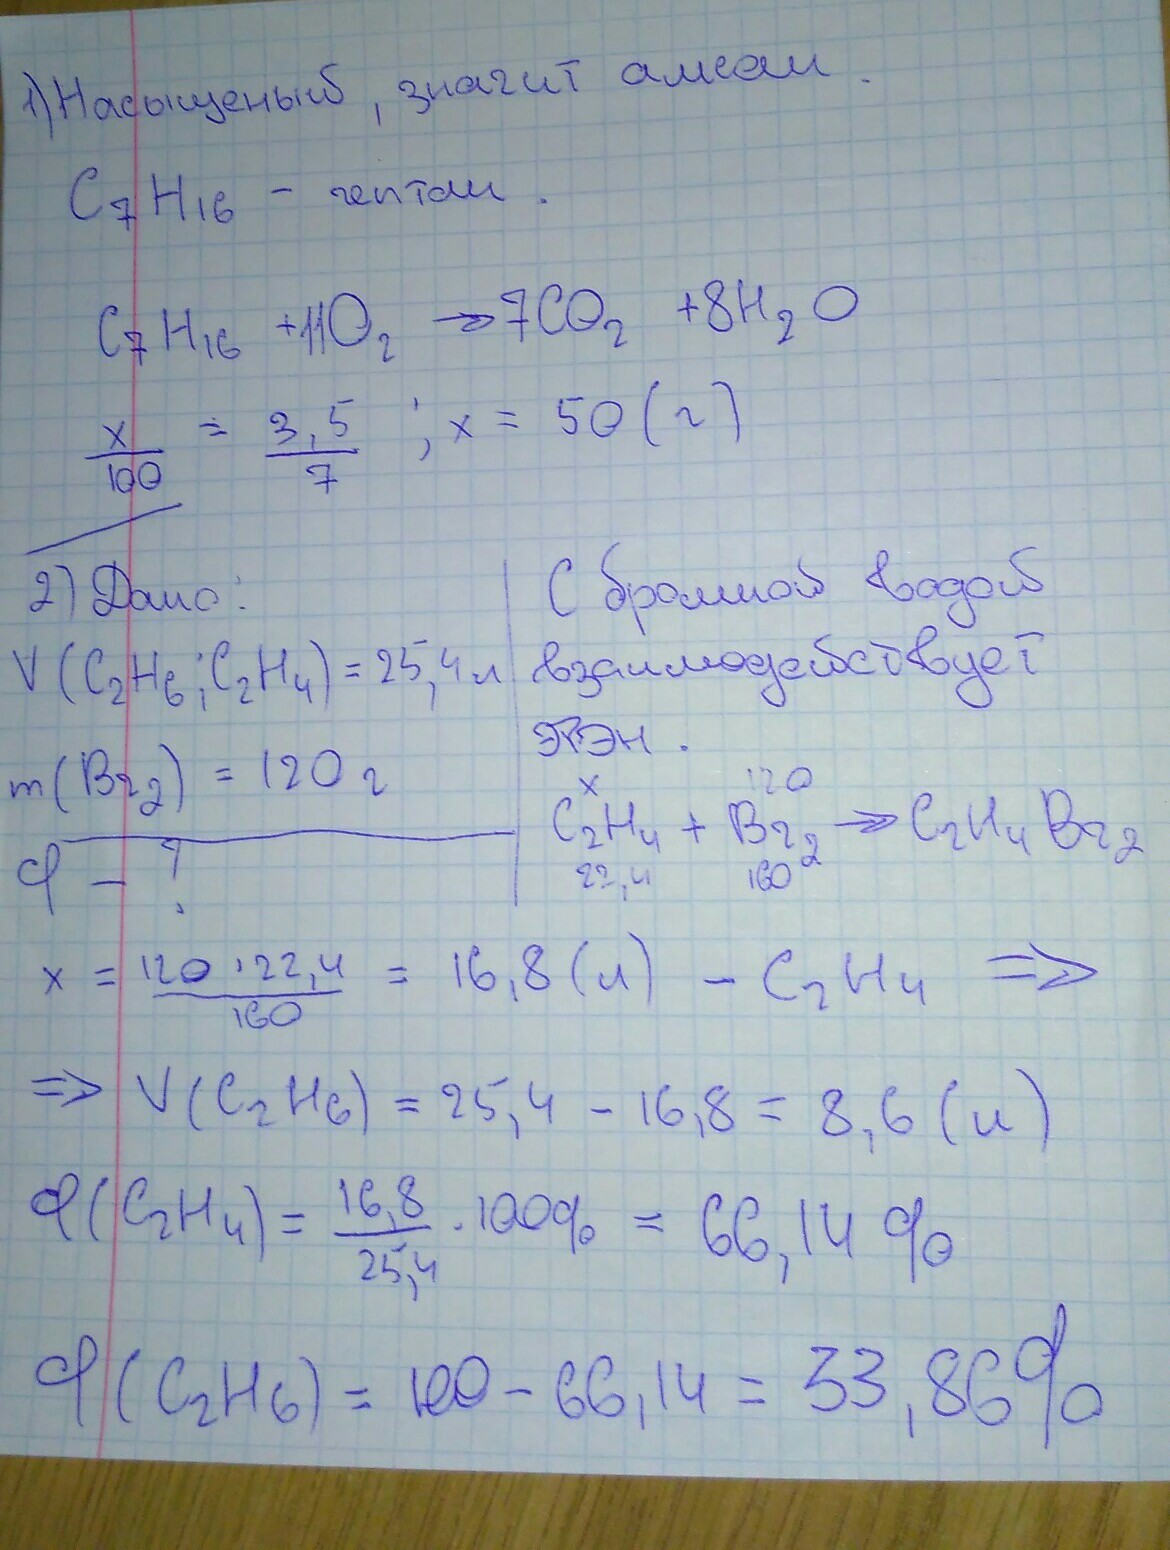 1) Насыщеный, значит алкан.
C₇H₁₆ - гептан.
C₇H₁₆ + 11O₂ → 7CO₂ + 8H₂O
x/100 = 3,5/7 ; x = 50 (г)
2) Дано:
V(C₂H₆; C₂H₄) = 25,4 л
m(Br₂) = 120 г
φ - ?
С бромной водой
взаимодействует
этэн.
x 120
C₂H₄ + Br₂ → C₂H₄Br₂
22,4 160
x = 120 · 22,4/160 = 16,8 (л) - C₂H₄ ⇒
⇒ V(C₂H₆) = 25,4 - 16,8 = 8,6 (л)
φ(C₂H₄) = 16,8/25,4 · 100% = 66,14 %
φ(C₂H₆) = 100 - 66,14 = 33,86%